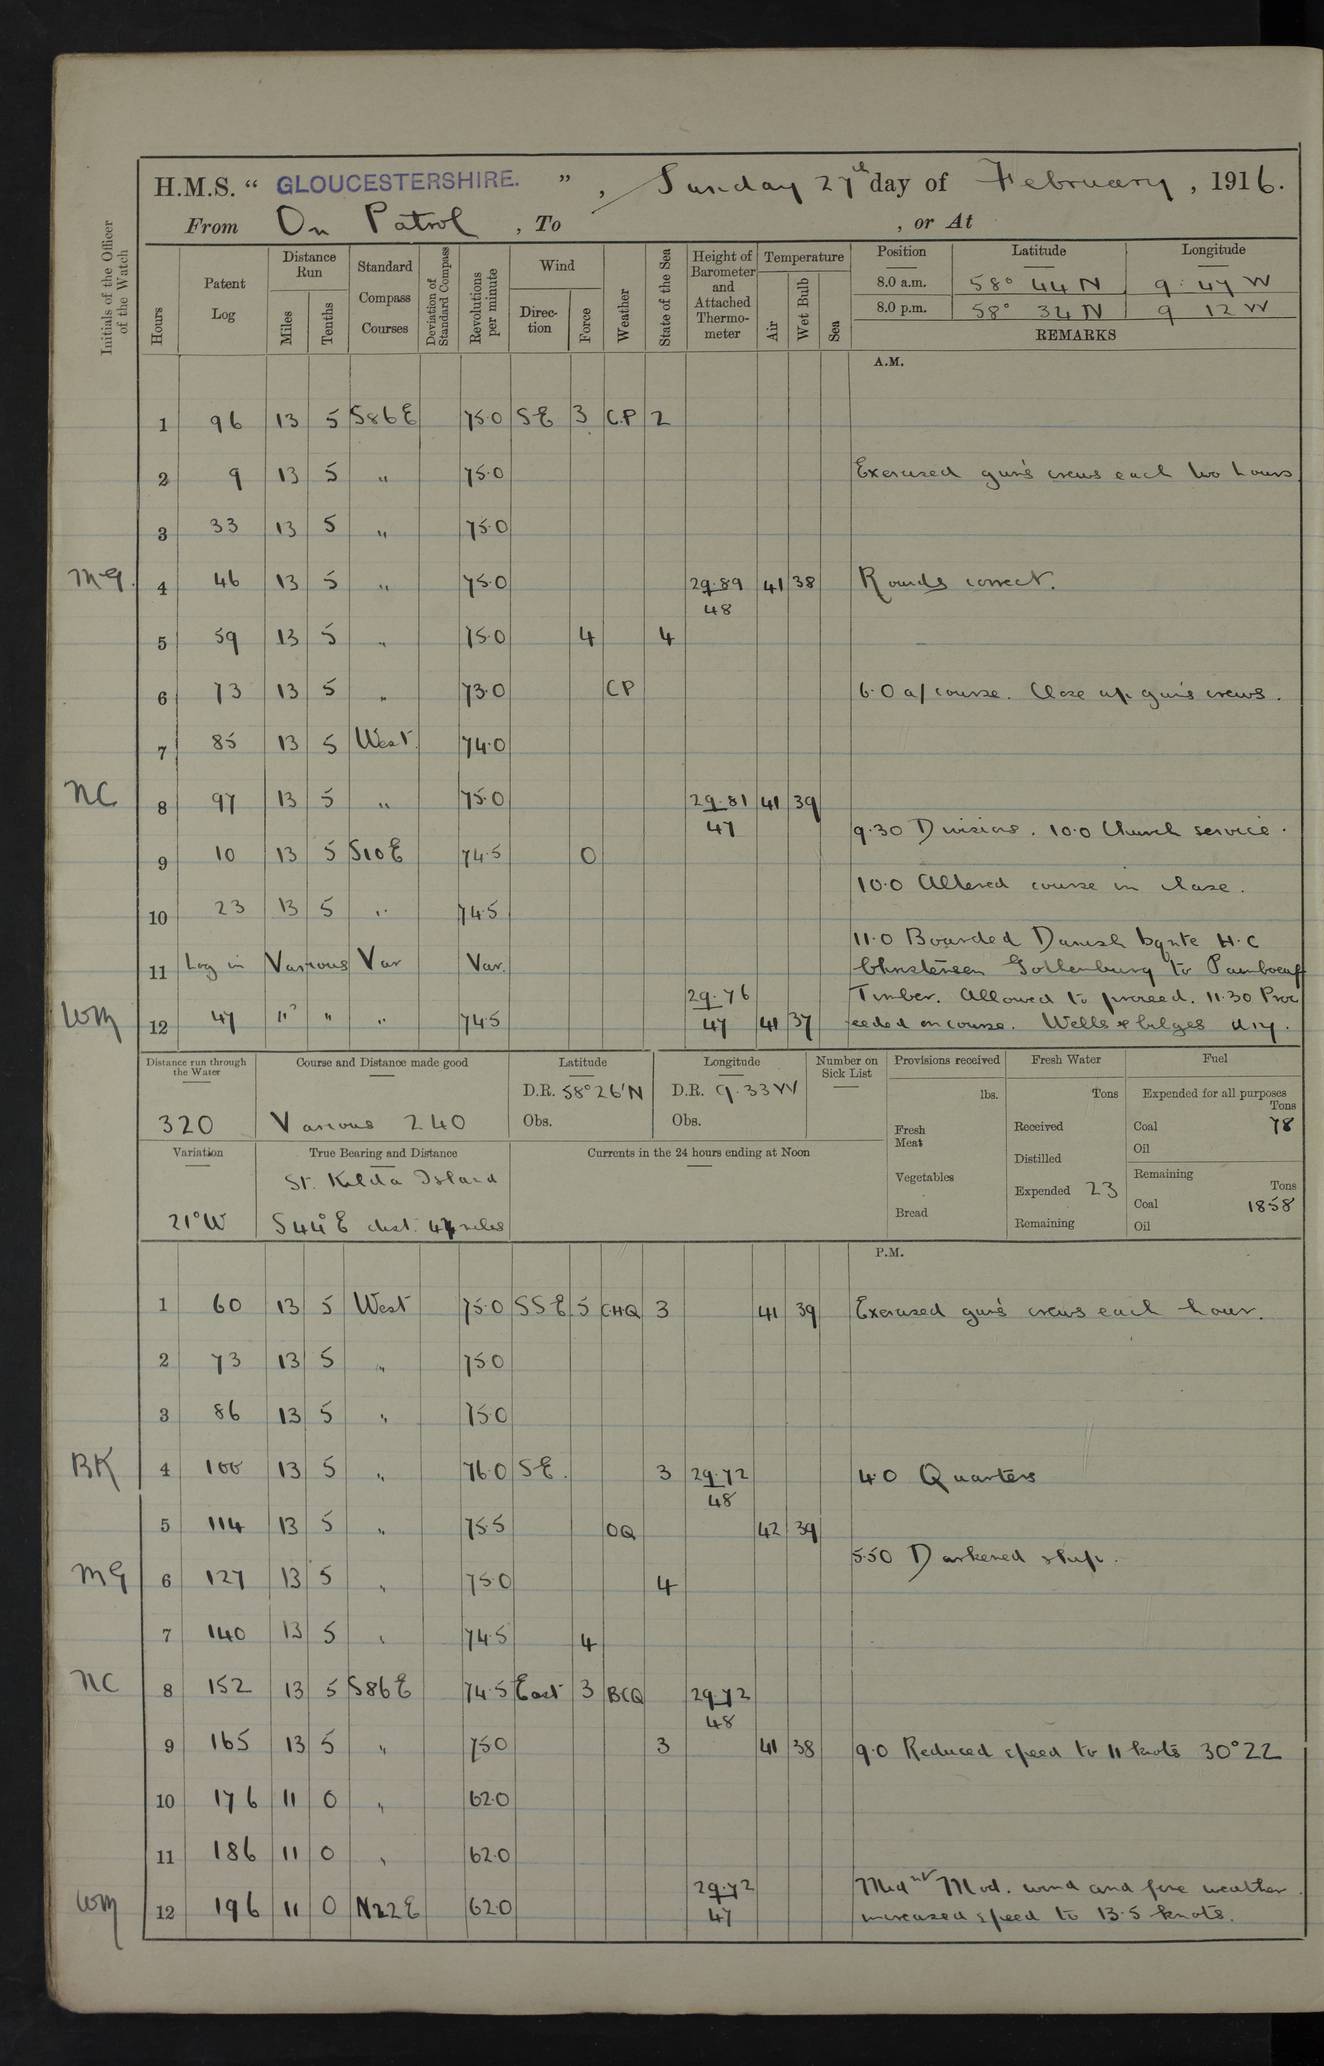 H.M.S. " GLOUCESTERSHIRE. " , Sunday 27th day of February , 1916.
From On Patrol , To , or At
Initials of the Officer of the Watch
Hours
Patent Log
Distance Run
Miles
Tenths
Standard Compass Courses
Deviation of Standard Compass
Revolutions per minute
Wind
Direc-tion
Force
Weather
State of the Sea
Height of Barometer and Attached Thermo-meter
Temperature
Air
Wet Bulb
Sea
Position Latitude Longitude
8.0 a.m. 58° 44 N 9 . 47 W
8.0 p.m. 58° 34 N 9 12 W
REMARKS
A.M.
1 96 13 5 S86E 75.0 SE 3 C.P 2
2 9 13 5 " 75.0 Exercised gun's crews each two hours
3 33 13 5 " 75.0
MG. 4 46 13 5 " 75.0 29.89 41 38 Rounds correct.
48
5 59 13 5 " 75.0 4 4
6 73 13 5 " 73.0 CP 6.0 a/course. Close up gun's crews.
7 85 13 5 West. 74.0
NC 8 97 13 5 " 75.0 29.81 41 39
47 9.30 Divisions. 10.0 Church service.
9 10 13 5 S10E 74.5 0
10.0 Altered course in chase.
10 23 13 5 " 74.5
11.0 Boarded Danish bqnte H.C
11 Log in Various Var Var. Christensen Gottenburg to
29.76 Timber. Allowed to proceed. 11.30 Proc
WM 12 47 " " " 74.5 47 41 37 eeded on course. Wells & bilges dry.
Distance run through the Water
320
Course and Distance made good
Various 240
Latitude
D.R. 58°26'N
Obs.
Longitude
D.R. 9.33W
Obs.
Number on Sick List
Provisions received
lbs.
Fresh Meat
Vegetables
Bread
Fresh Water
Tons
Received
Distilled
Expended 23
Remaining
Fuel
Expended for all purposes
Tons
Coal 78
Oil
Remaining
Tons
Coal 1858
Oil
Variation
21°W
True Bearing and Distance
St. Kilda Island
S44°E dist. 44 miles
Currents in the 24 hours ending at Noon
P.M.
1 60 13 5 West 75.0 SSE 5 CHQ 3 41 39 Exercised gun's crews each hour.
2 73 13 5 " 75.0
3 86 13 5 " 75.0
BK 4 100 13 5 " 76.0 SE. 3 29.72 4.0 Quarters
48
5 114 13 5 " 75.5 OQ 42 39
5.50 Darkened ship.
MG 6 127 13 5 " 75.0 4
7 140 13 5 " 74.5 4
NC 8 152 13 5 S86E 74.5 East 3 BCQ 29.72
48
9 165 13 5 " 75.0 3 41 38 9.0 Reduced speed to 11 knots 30°22
10 176 11 0 " 62.0
11 186 11 0 " 62.0
29.72 Midnt Mod. wind and fine weather.
WM 12 196 11 0 N22E 62.0 47 increased speed to 13.5 knots.